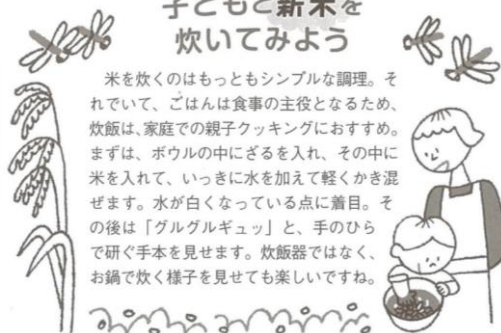 子どもと新米を
炊いてみよう
米を炊くのはもっともシンプルな調理。そ
れでいて、ごはんは食事の主役となるため、
炊飯は、家庭での親子クッキングにおすすめ。
まずは、ボウルの中にざるを入れ、その中に
米を入れて、いっきに水を加えて軽くかき混
ぜます。水が白くなっている点に着目。そ
の後は「グルグルギュッ」と、手のひら
で研ぐ手本を見せます。炊飯器ではなく、
お鍋で炊く様子を見せても楽しいですね。